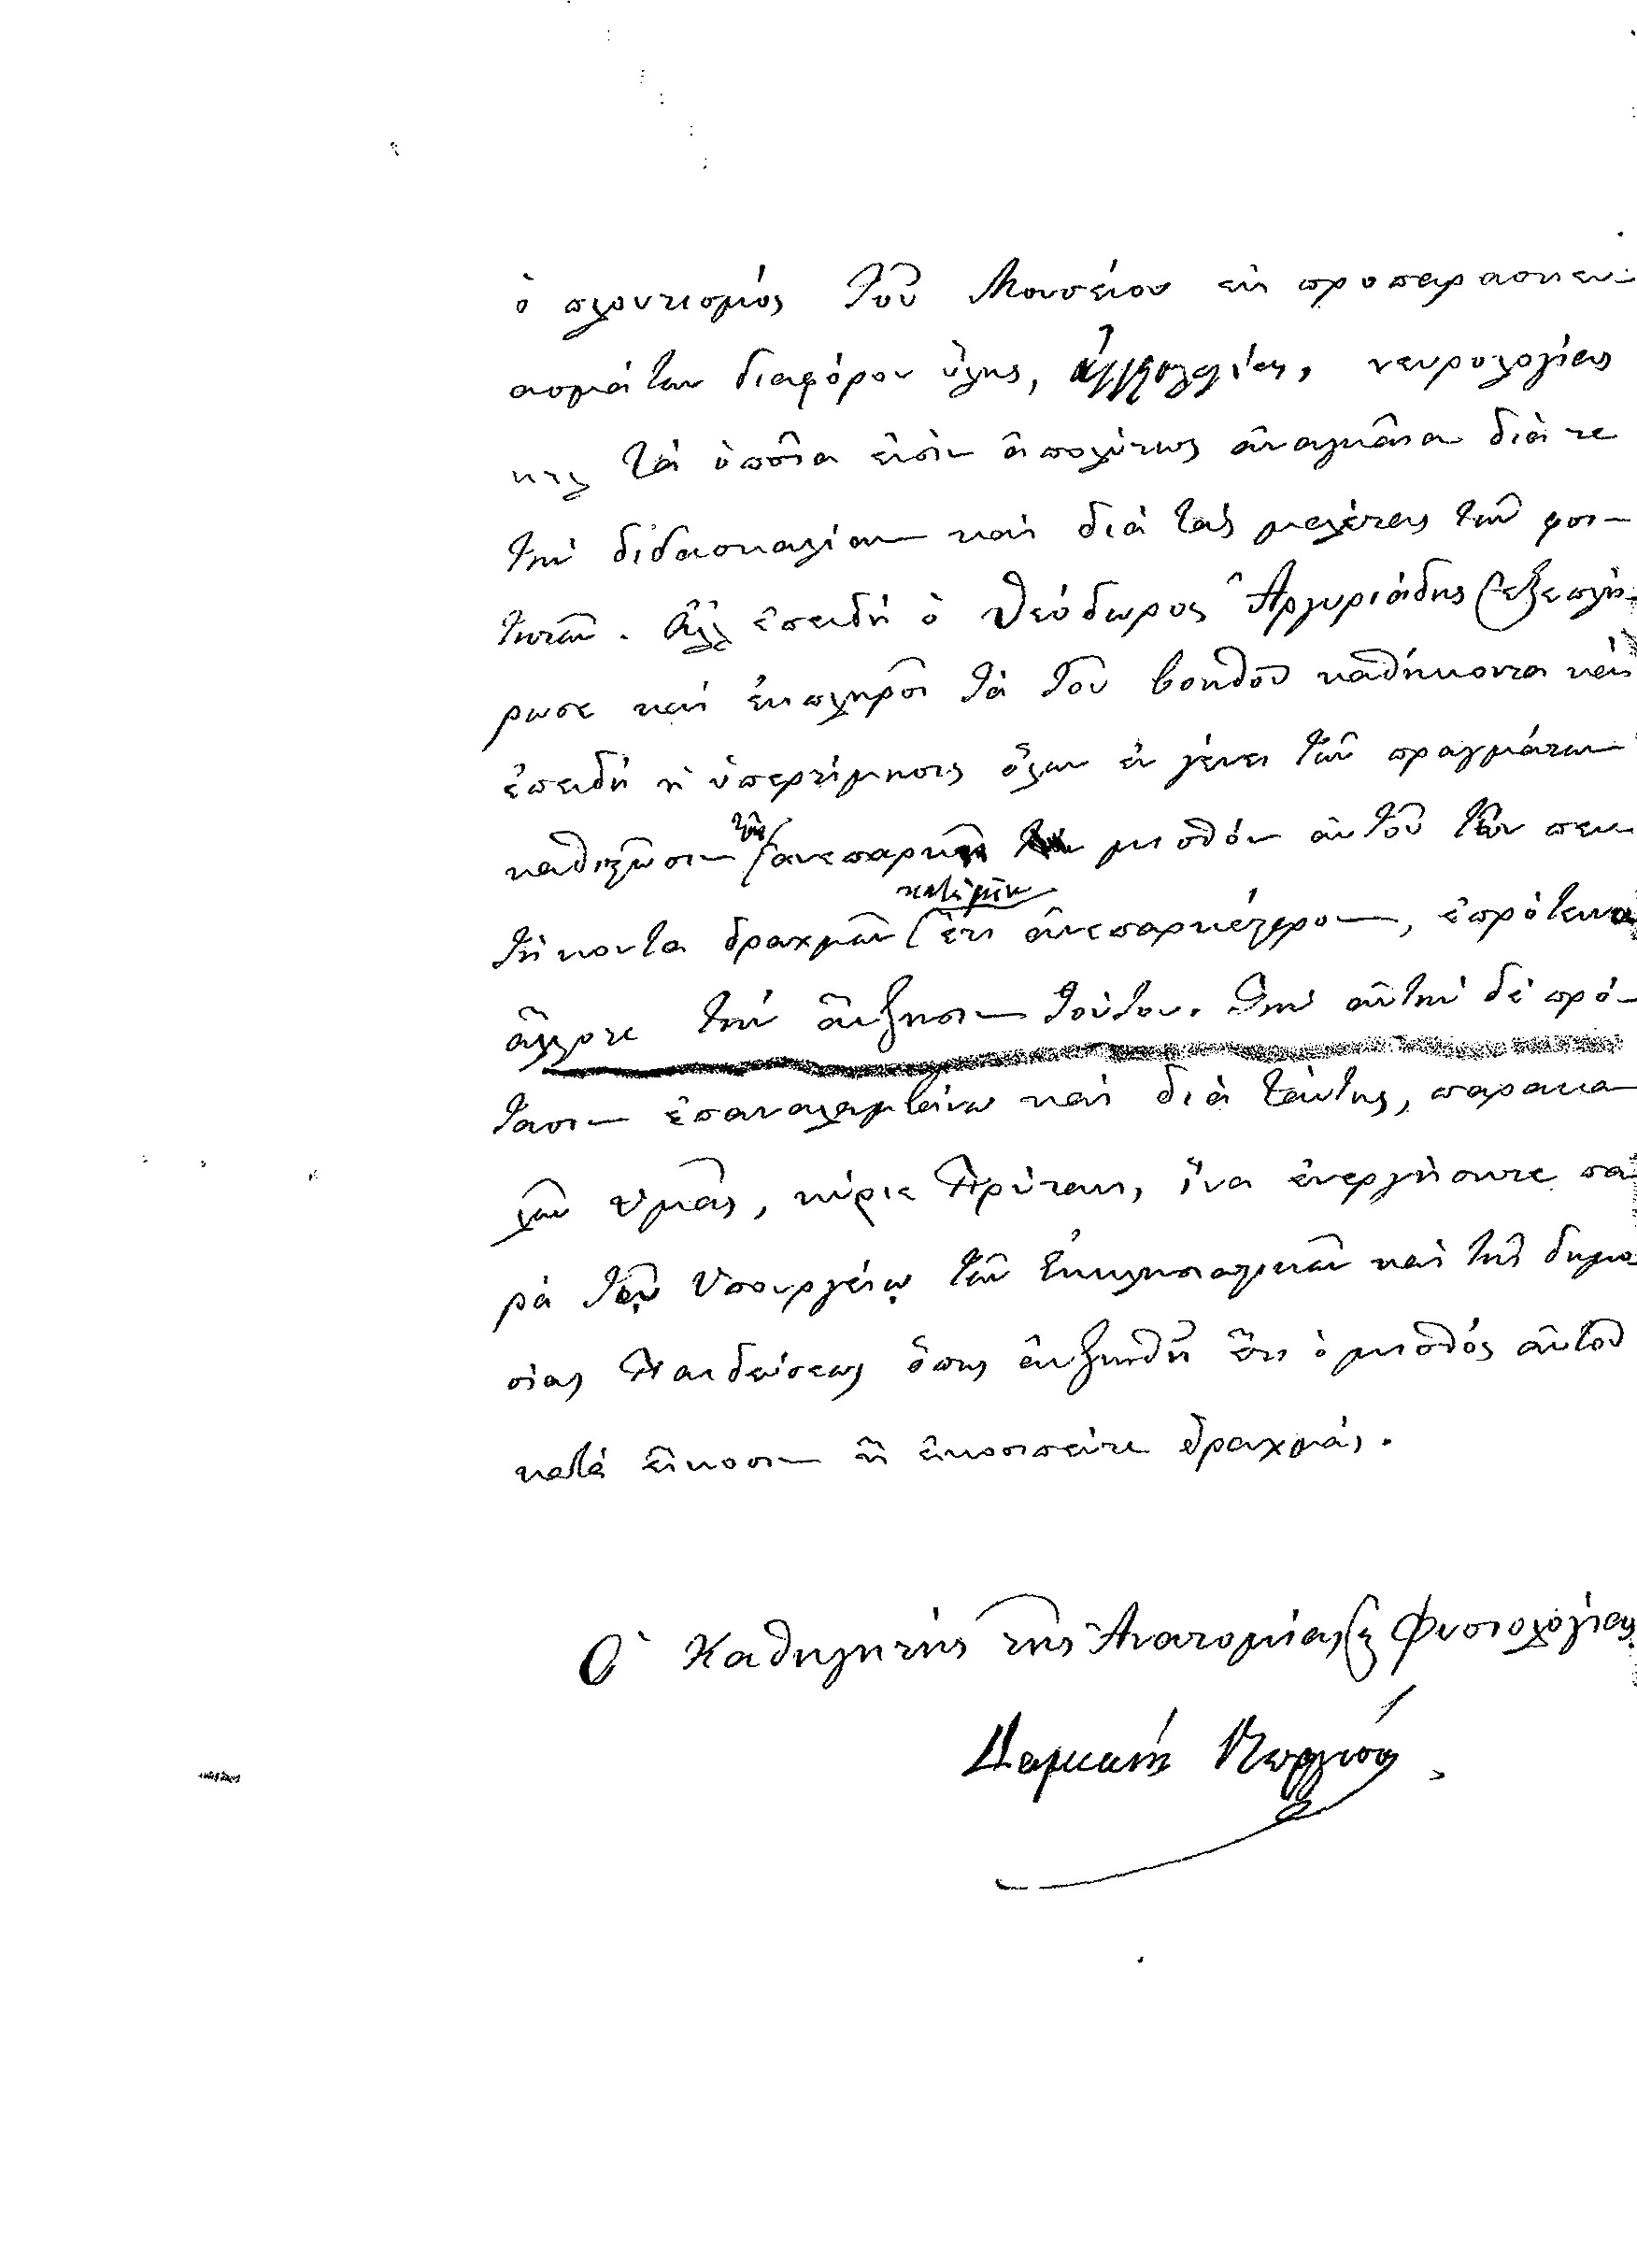 ὁ πλουτισμός τοῦ Μουσείου εἰς προπαρασκευ-
ασμάτων διαφόρου ὕλης, ἀγγειολογίας, νευρολογίας
κτλ τά ὁποῖα εἰσίν ἀπολύτως ἀναγκαῖα διά τε
τήν διδασκαλίαν καί διά τάς μελέτας τῶν φοι-
τητῶν. Ἀλλ' ἐπειδή ὁ Θεόδωρος Ἀργυριάδης ἐξεπλή-
ρωσε καί ἐκπληροῖ τά τοῦ βοηθοῦ καθήκοντα καί
ἐπειδή ἡ ὑπερτίμησις ὅλων ἐν γένει τῶν πραγμάτων
καθιστῶσιν τόν ἀνεπαρκῆ μισθόν αὐτοῦ τῶν πεν-
τήκοντα δραχμῶν ἔτι ἀνεπαρκέστερον, ἐπρότεινα
ἄλλοτε τήν αὔξησιν τούτου. Τήν αὐτήν δέ πρό-
τασιν ἐπαναλαμβάνω καί διά ταύτης, παρακα-
λῶν Ὑμᾶς, κύριε Πρύτανι, ἵνα ἐνεργήσητε πα-
ρά τῷ Ὑπουργείῳ τῶν Ἐκκλησιαστικῶν καί τῆς δημο-
σίας Παιδεύσεως ὅπως αὐξηθῇ ἔτι ὁ μισθός αὐτοῦ
κατά εἴκοσιν ἤ εἰκοσιπέντε δραχμάς.
Ὁ Καθηγητής τῆς Ἀνατομίας ϗ Φυσιολογίας
Δαμιανός Γεωργίου